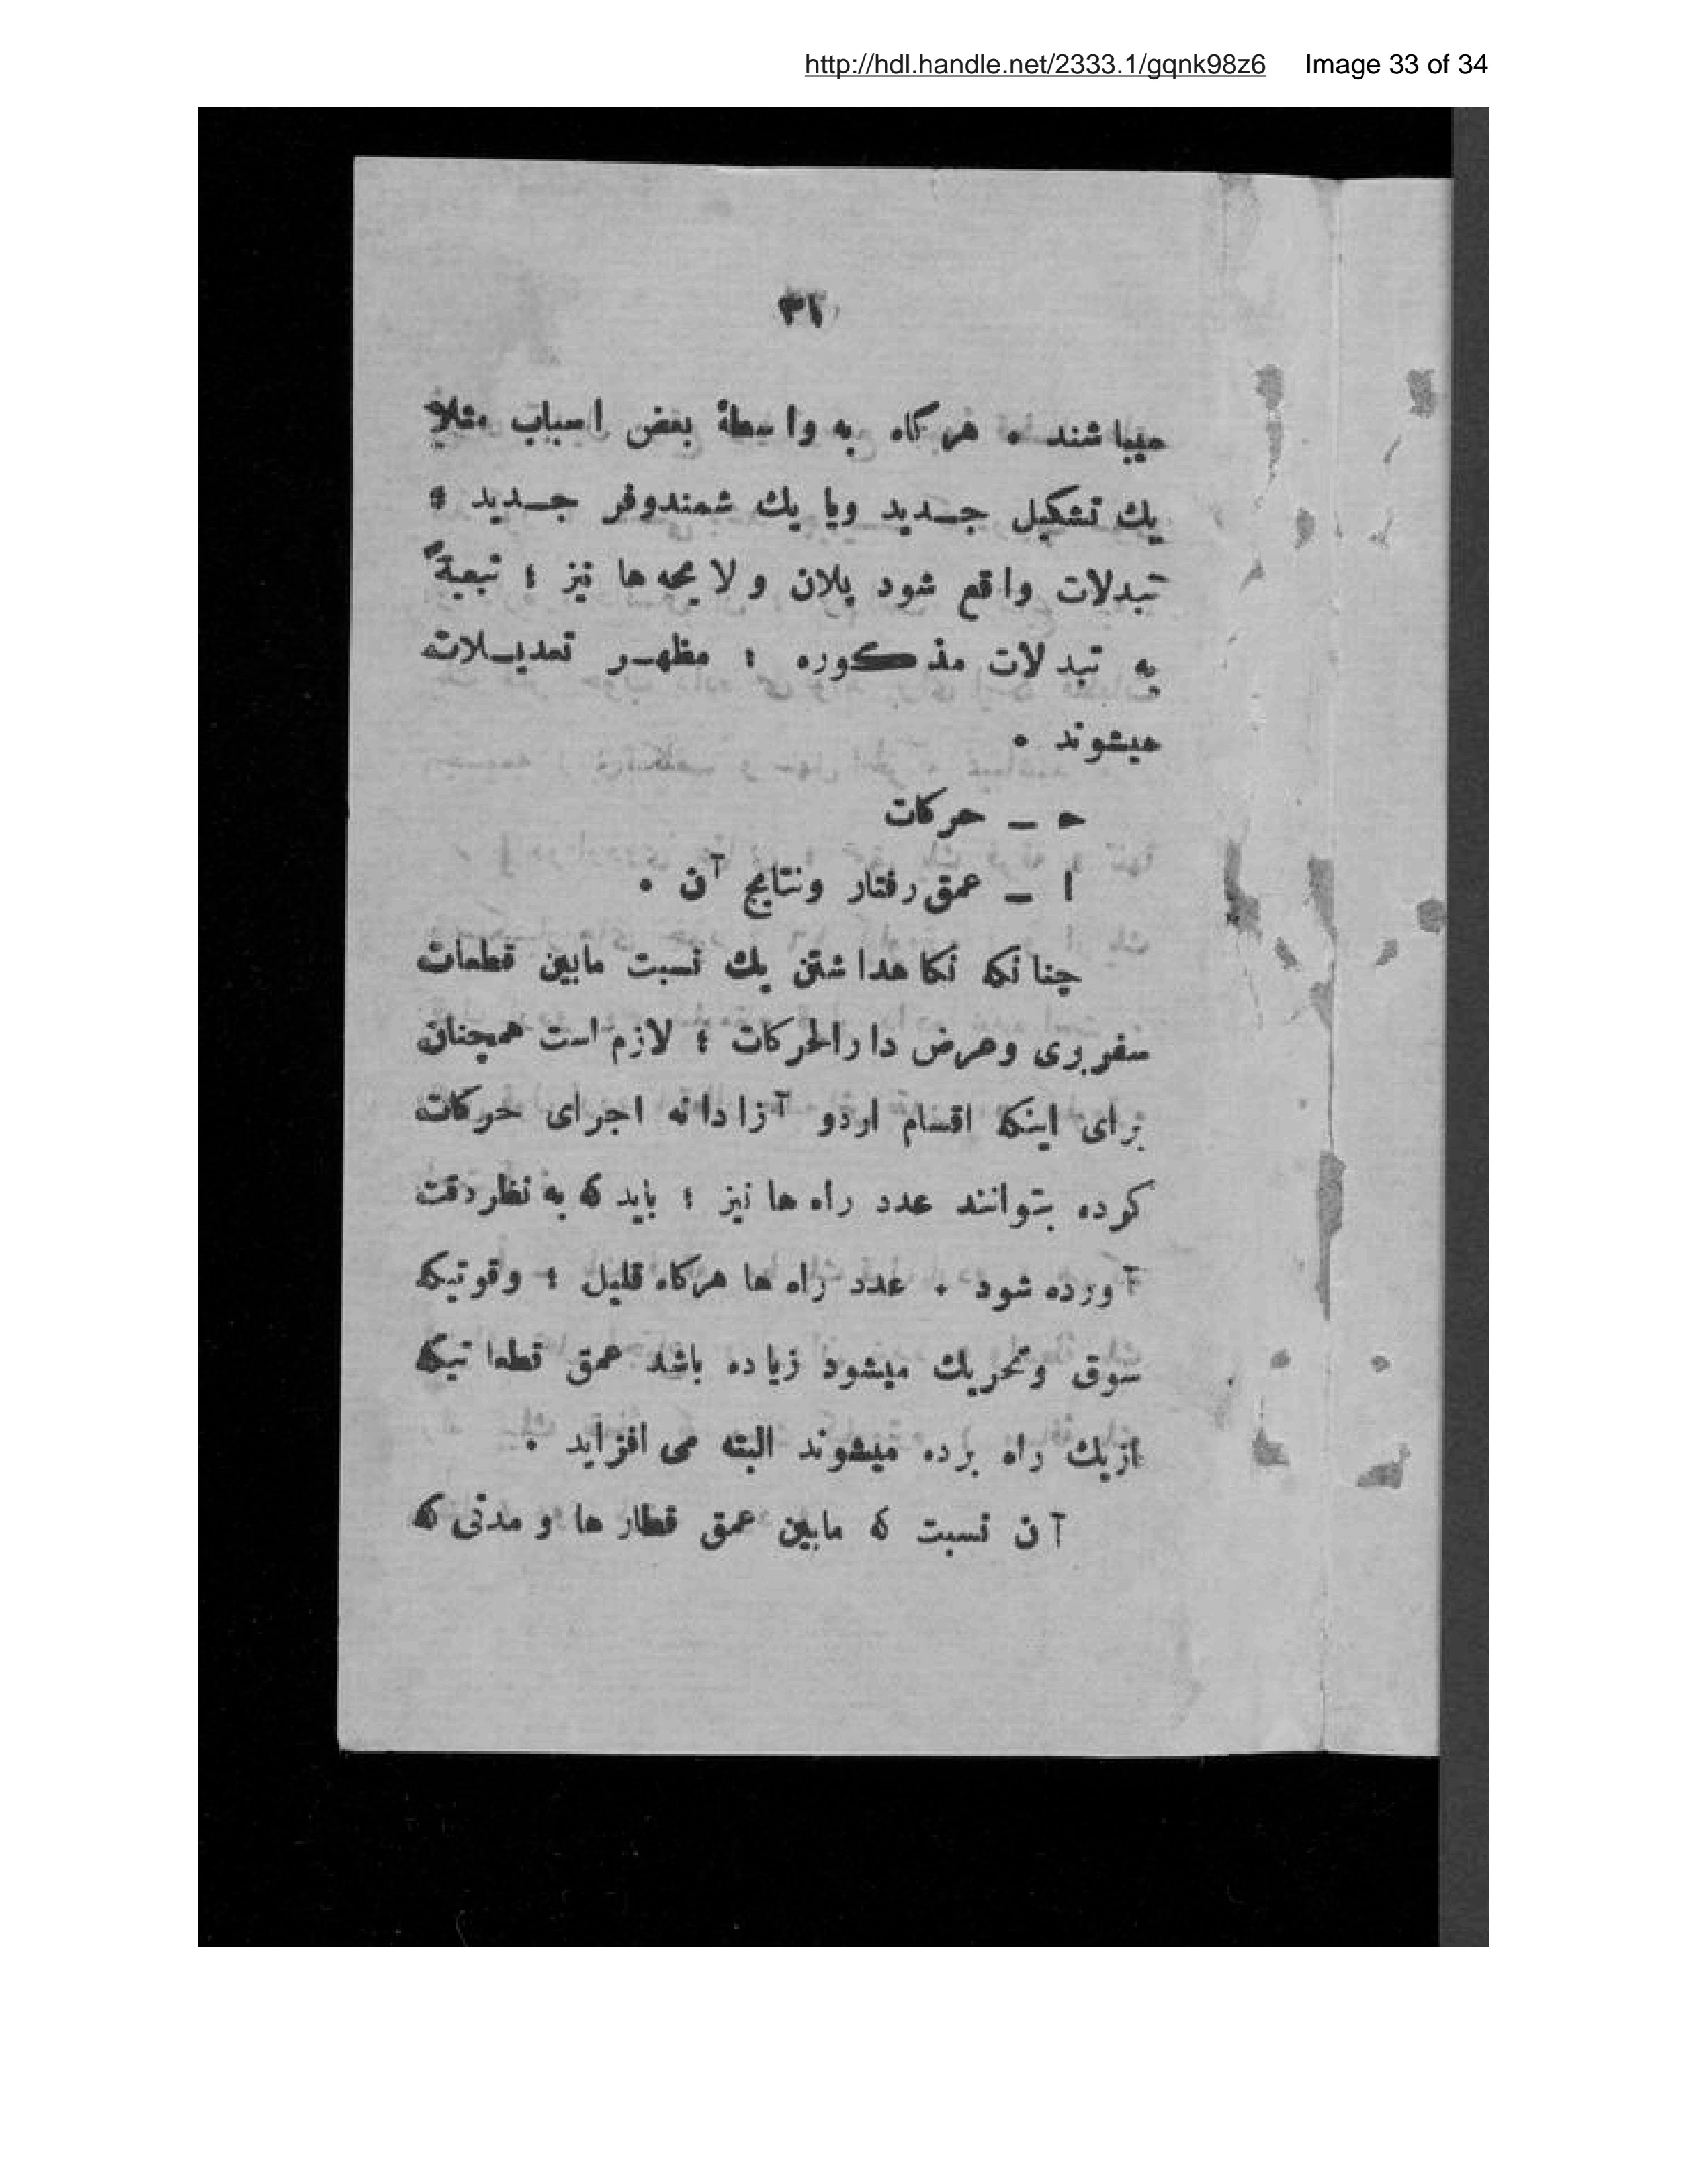 http://hdl.handle.net/2333.1/gqnk98z6 Image 33 of 34
۳۱
میباشند . هرکاه به واسطهٔ بعض اسباب مثلاً
یك تشکیل جـدید ویا یك شمندوفر جـدید ؛
تبدلات واقع شود پلان و لایحه ها نیز ؛ تبعیةً
به تبدلات مذکوره ؛ مظهـر تعدیـلات
میشوند .
ح ــ حرکات
۱ ــ عمق رفتار ونتایج آن .
چنانکه نکاهداشتن یك نسبت مابین قطعات
سفربری وعرض دارالحرکات ؛ لازم است همچنان
برای اینکه اقسام اردو آزادانه اجرای حرکات
کرده بتوانند عدد راه ها نیز ؛ باید که به نظردقت
آورده شود . عدد راه ها هرکاه قلیل ؛ وقوتیکه
سوق وتحریك میشود زیاده باشد عمق قطعاتیکه
ازیك راه برده میشوند البته می افزاید .
آن نسبت که مابین عمق قطار ها و مدتی که